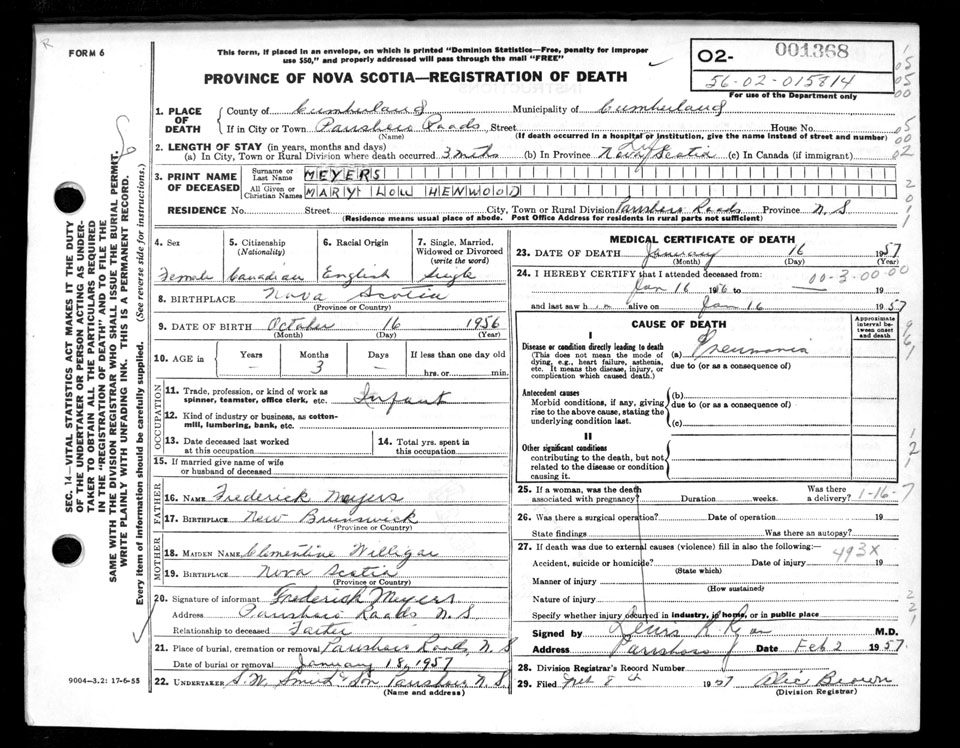 R
FORM 6
This form, if placed in an envelope, on which is printed "Dominion Statistics—Free, penalty for improper
use $50," and properly addressed will pass through the mail "FREE"
PROVINCE OF NOVA SCOTIA—REGISTRATION OF DEATH
02- 001368
56-02-015814
For use of the Department only
1. PLACE OF DEATH
County of Cumberland Municipality of Cumberland
If in City or Town Parrsboro Roads Street House No.
(Name) (If death occurred in a hospital or institution, give the name instead of street and number)
2. LENGTH OF STAY (in years, months and days)
(a) In City, Town or Rural Division where death occurred 3 mths (b) In Province Nova Scotia (c) In Canada (if immigrant)
3. PRINT NAME OF DECEASED
Surname or Last Name MEYERS
All Given or Christian Names MARY LOW HENWOOD
RESIDENCE No. Street City, Town or Rural Division Parrsboro Roads Province N S
(Residence means usual place of abode. Post Office Address for residents in rural parts not sufficient)
4. Sex Female
5. Citizenship (Nationality) Canadian
6. Racial Origin English
7. Single, Married, Widowed or Divorced (write the word) Single
8. BIRTHPLACE Nova Scotia
(Province or Country)
9. DATE OF BIRTH October 16 1956
(Month) (Day) (Year)
10. AGE in Years — Months 3 Days — If less than one day old hrs. or min.
OCCUPATION
11. Trade, profession, or kind of work as spinner, teamster, office clerk, etc. Infant
12. Kind of industry or business, as cotton-mill, lumbering, bank, etc.
13. Date deceased last worked at this occupation
14. Total yrs. spent in this occupation
15. If married give name of wife or husband of deceased
FATHER
16. NAME Frederick Meyers
17. BIRTHPLACE New Brunswick
(Province or Country)
MOTHER
18. MAIDEN NAME Clementine Willigar
19. BIRTHPLACE Nova Scotia
(Province or Country)
20. Signature of informant Frederick Meyers
Address Parrsboro Roads N. S
Relationship to deceased
21. Place of burial, cremation or removal Parrsboro Roads, N. S
Date of burial or removal January 18, 1957
22. UNDERTAKER S. W. Smith & Son Parrsboro N. S.
(Name and address)
MEDICAL CERTIFICATE OF DEATH
23. DATE OF DEATH January 16 1957
(Month) (Day) (Year)
24. I HEREBY CERTIFY that I attended deceased from: 00-3-00-00
Jan 16 to 19
and last saw h alive on Jan 16 1957
CAUSE OF DEATH
Approximate interval between onset and death
I
Disease or condition directly leading to death
(This does not mean the mode of dying, e.g., heart failure, asthenia, etc. It means the disease, injury, or complication which caused death.)
(a) Pneumonia
due to (or as a consequence of)
Antecedent causes
Morbid conditions, if any, giving rise to the above cause, stating the underlying condition last.
(b)
due to (or as a consequence of)
(c)
II
Other significant conditions
contributing to the death, but not related to the disease or condition causing it.
25. If a woman, was the death associated with pregnancy? Duration weeks. Was there a delivery? 1-16-7
26. Was there a surgical operation? Date of operation 19
State findings Was there an autopsy?
27. If death was due to external causes (violence) fill in also the following:— 493X
Accident, suicide or homicide? Date of injury 19
(State which)
Manner of injury
(How sustained)
Nature of injury
Specify whether injury occurred in industry, in home, or in public place
Signed by Denis R Ryan M.D.
Address Parrsboro Date Feb 2 1957
28. Division Registrar's Record Number
29. Filed Feb 8th 1957 Alice Brown
(Division Registrar)
9004—3.2: 17-6-55
SEC. 14—VITAL STATISTICS ACT MAKES IT THE DUTY
OF THE UNDERTAKER OR PERSON ACTING AS UNDER-
TAKER TO OBTAIN ALL THE PARTICULARS REQUIRED
IN THE "REGISTRATION OF DEATH" AND TO FILE THE
SAME WITH THE DIVISION REGISTRAR WHO SHALL ISSUE THE BURIAL PERMIT.
WRITE PLAINLY WITH UNFADING INK. THIS IS A PERMANENT RECORD.
Every item of information should be carefully supplied. (See reverse side for instructions.)